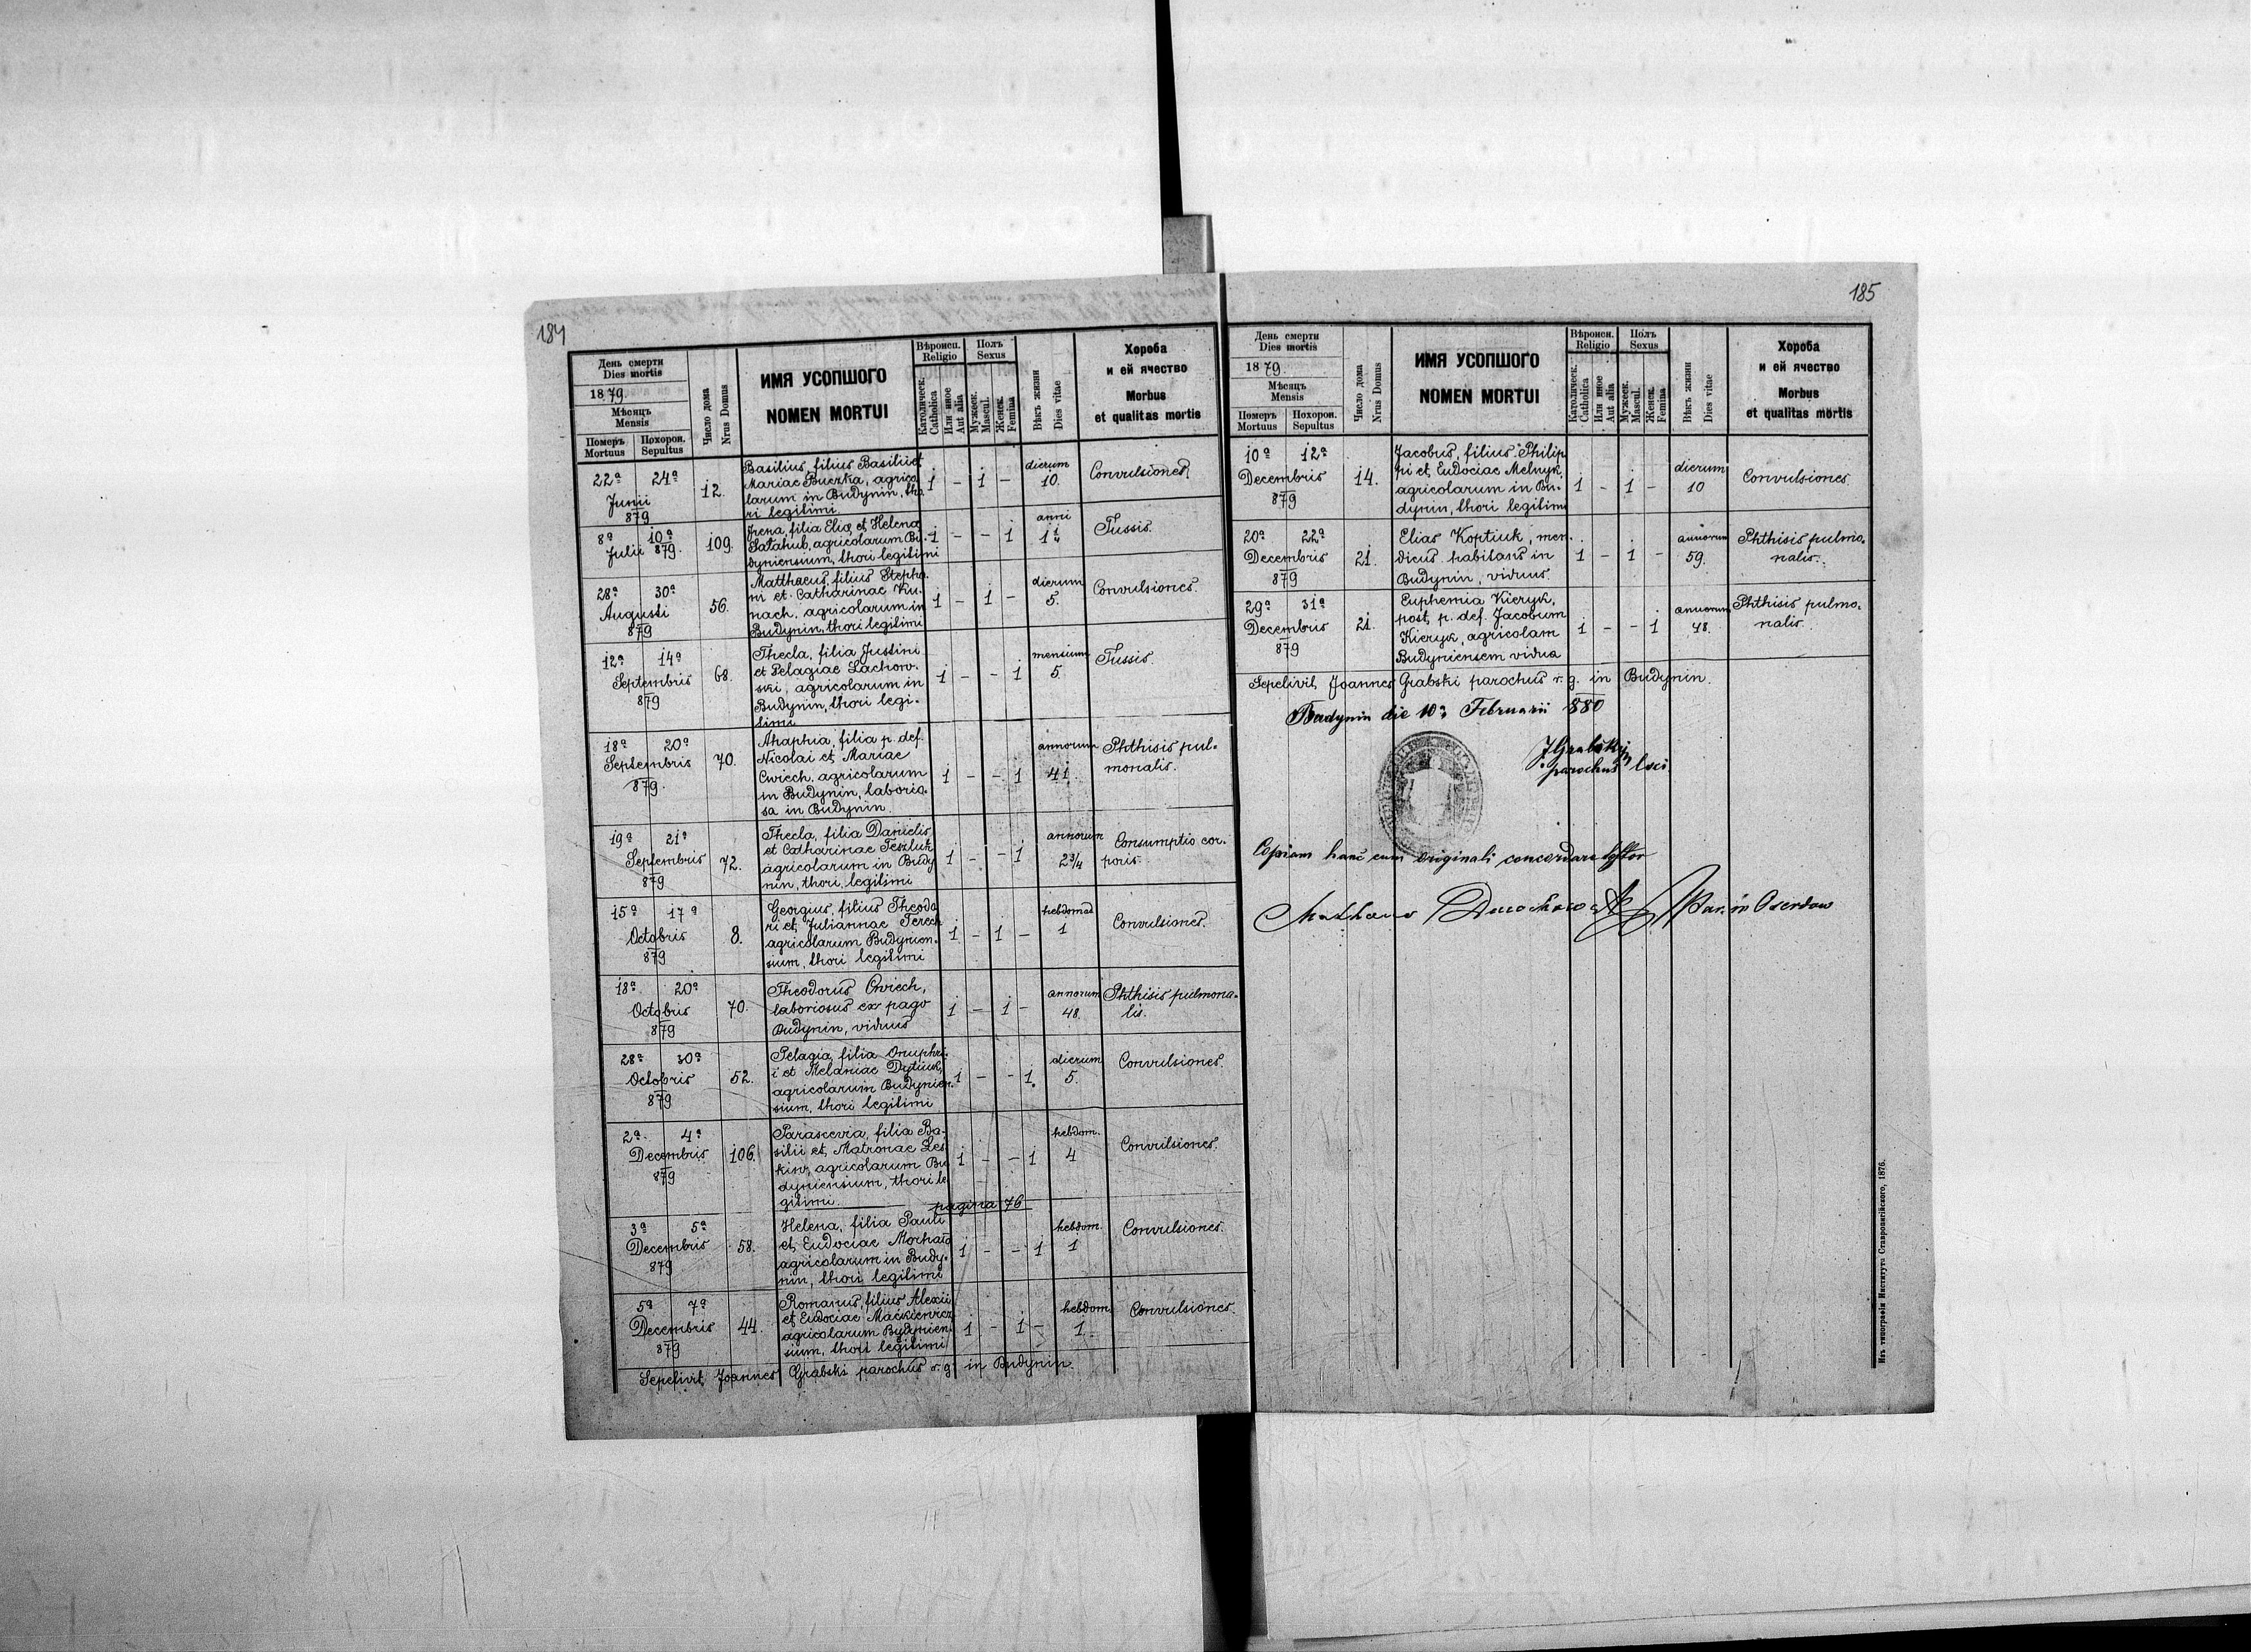 184
День смерти
Dies mortis
1879.
Мѣсяцъ
Mensis
Померъ Mortuus
Похорон. Sepultus
Число дома
Nrus Domus
ИМЯ УСОПШОГО
NOMEN MORTUI
Вѣроисп.
Religio
Католическ.
Catholica
Или иное
Aut alia
Полъ
Sexus
Мужеск.
Mascul.
Женск.
Femina
Вѣкъ жизни
Dies vitae
Хороба
и ей ячество
Morbus
et qualitas mortis
22a 24a
Junii
879
12.
Basilius, filius Basilii et
Mariae Buczka, agrico
larum in Budynin, tho
ri legitimi
1 - 1 -
dierum
10.
Convulsiones
8a 10a
Julii 879.
109.
Irena, filia Eliae et Helena
agricolarum Bu-
dyniensium, thori legitimi
1 - - 1
anni
Tussis.
28a 30a
Augusti
879
56.
Matthaeus, filius Stepha
ni et Catharinae Ku-
nach, agricolarum in
Budynin, thori legitimi
1 - 1 -
dierum
5.
Convulsiones.
12a 14a
Septembris
879
68.
Thecla, filia Justini
et Pelagiae Lachow-
ski, agricolarum in
Budynin, thori legi-
timi
1 - - 1
mensium
5.
Tussis.
18a 20a
Septembris
879.
70.
Ahaphia, filia p. def.
Nicolai et Mariae
Cwiech, agricolarum
in Budynin, laborio-
sa in Budynin
1 - - 1
annorum
41.
Phthisis pul-
monalis.
19a 21a
Septembris
879
72.
Thecla, filia Danielis
et Catharinae Teszluk
agricolarum in Budy
nin, thori legitimi
1 - - 1
annorum
2 3/4
Consumptio cor-
poris.
15a 17a
Octobris
879
8.
Georgius, filius Theodo
ri et Juliannae Terech
agricolarum Budynien-
sium, thori legitimi
1 - 1 -
hebdomad
1
Convulsiones.
18a 20a
Octobris
879
70.
Theodorus Cwiech,
laboriosus ex pago
Budynin, viduus
1 - 1 -
annorum
48.
Phthisis pulmona-
lis.
28a 30a
Octobris
879
52.
Pelagia, filia Onuphri-
i et Melaniae Dytiuk,
agricolarum Budynien-
sium, thori legitimi
1 - - 1.
dierum
5.
Convulsiones.
2a 4a
Decembris
879
106.
Parascevia, filia Ba-
silii et Matronae Les
kiw, agricolarum Bu
dyniensium, thori le
gitimi.
1 - - 1
hebdom.
4
Convulsiones.
pagina 76
3a 5a
Decembris
879
58.
Helena, filia Pauli
et Eudociae
agricolarum in Budy-
nin, thori legitimi
1 - - 1
hebdom.
1
Convulsiones.
5a 7a
Decembris
879
44.
Romanus, filius Alexii
et Eudociae Mackiewicz
agricolarum Budynien
sium, thori legitimi
1 - 1 -
hebdom.
1.
Convulsiones.
Sepelivit Joannes Grabski parochus r. g. in Budynin.
185
День смерти
Dies mortis
1879.
Мѣсяцъ
Mensis
Померъ Mortuus
Похорон. Sepultus
Число дома
Nrus Domus
ИМЯ УСОПШОГО
NOMEN MORTUI
Вѣроисп.
Religio
Католическ.
Catholica
Или иное
Aut alia
Полъ
Sexus
Мужеск.
Mascul.
Женск.
Femina
Вѣкъ жизни
Dies vitae
Хороба
и ей ячество
Morbus
et qualitas mortis
10a 12a
Decembris
879
14.
Jacobus, filius Philip
pi et Eudociae Melnyk,
agricolarum in Bu-
dynin, thori legitimi
1 - 1 -
dierum
10
Convulsiones
20a 22a
Decembris
879
21.
Elias Koptiuk, men-
dicus habitans in
Budynin, viduus.
1 - 1 -
annorum
59.
Phthisis pulmo-
nalis.
29a 31a
Decembris
879
21.
Euphemia Kieryk,
post p. def. Jacobum
Kieryk, agricolam
Budyniensem vidua
1 - - 1
annorum
48.
Phthisis pulmo-
nalis.
Sepelivit Joannes Grabski parochus r. g. in Budynin.
Budynin die 10a Februarii 880
parochus loci
Copiam hanc cum originali concordare testor
Изъ типографіи Института Ставропигійского, 1876.